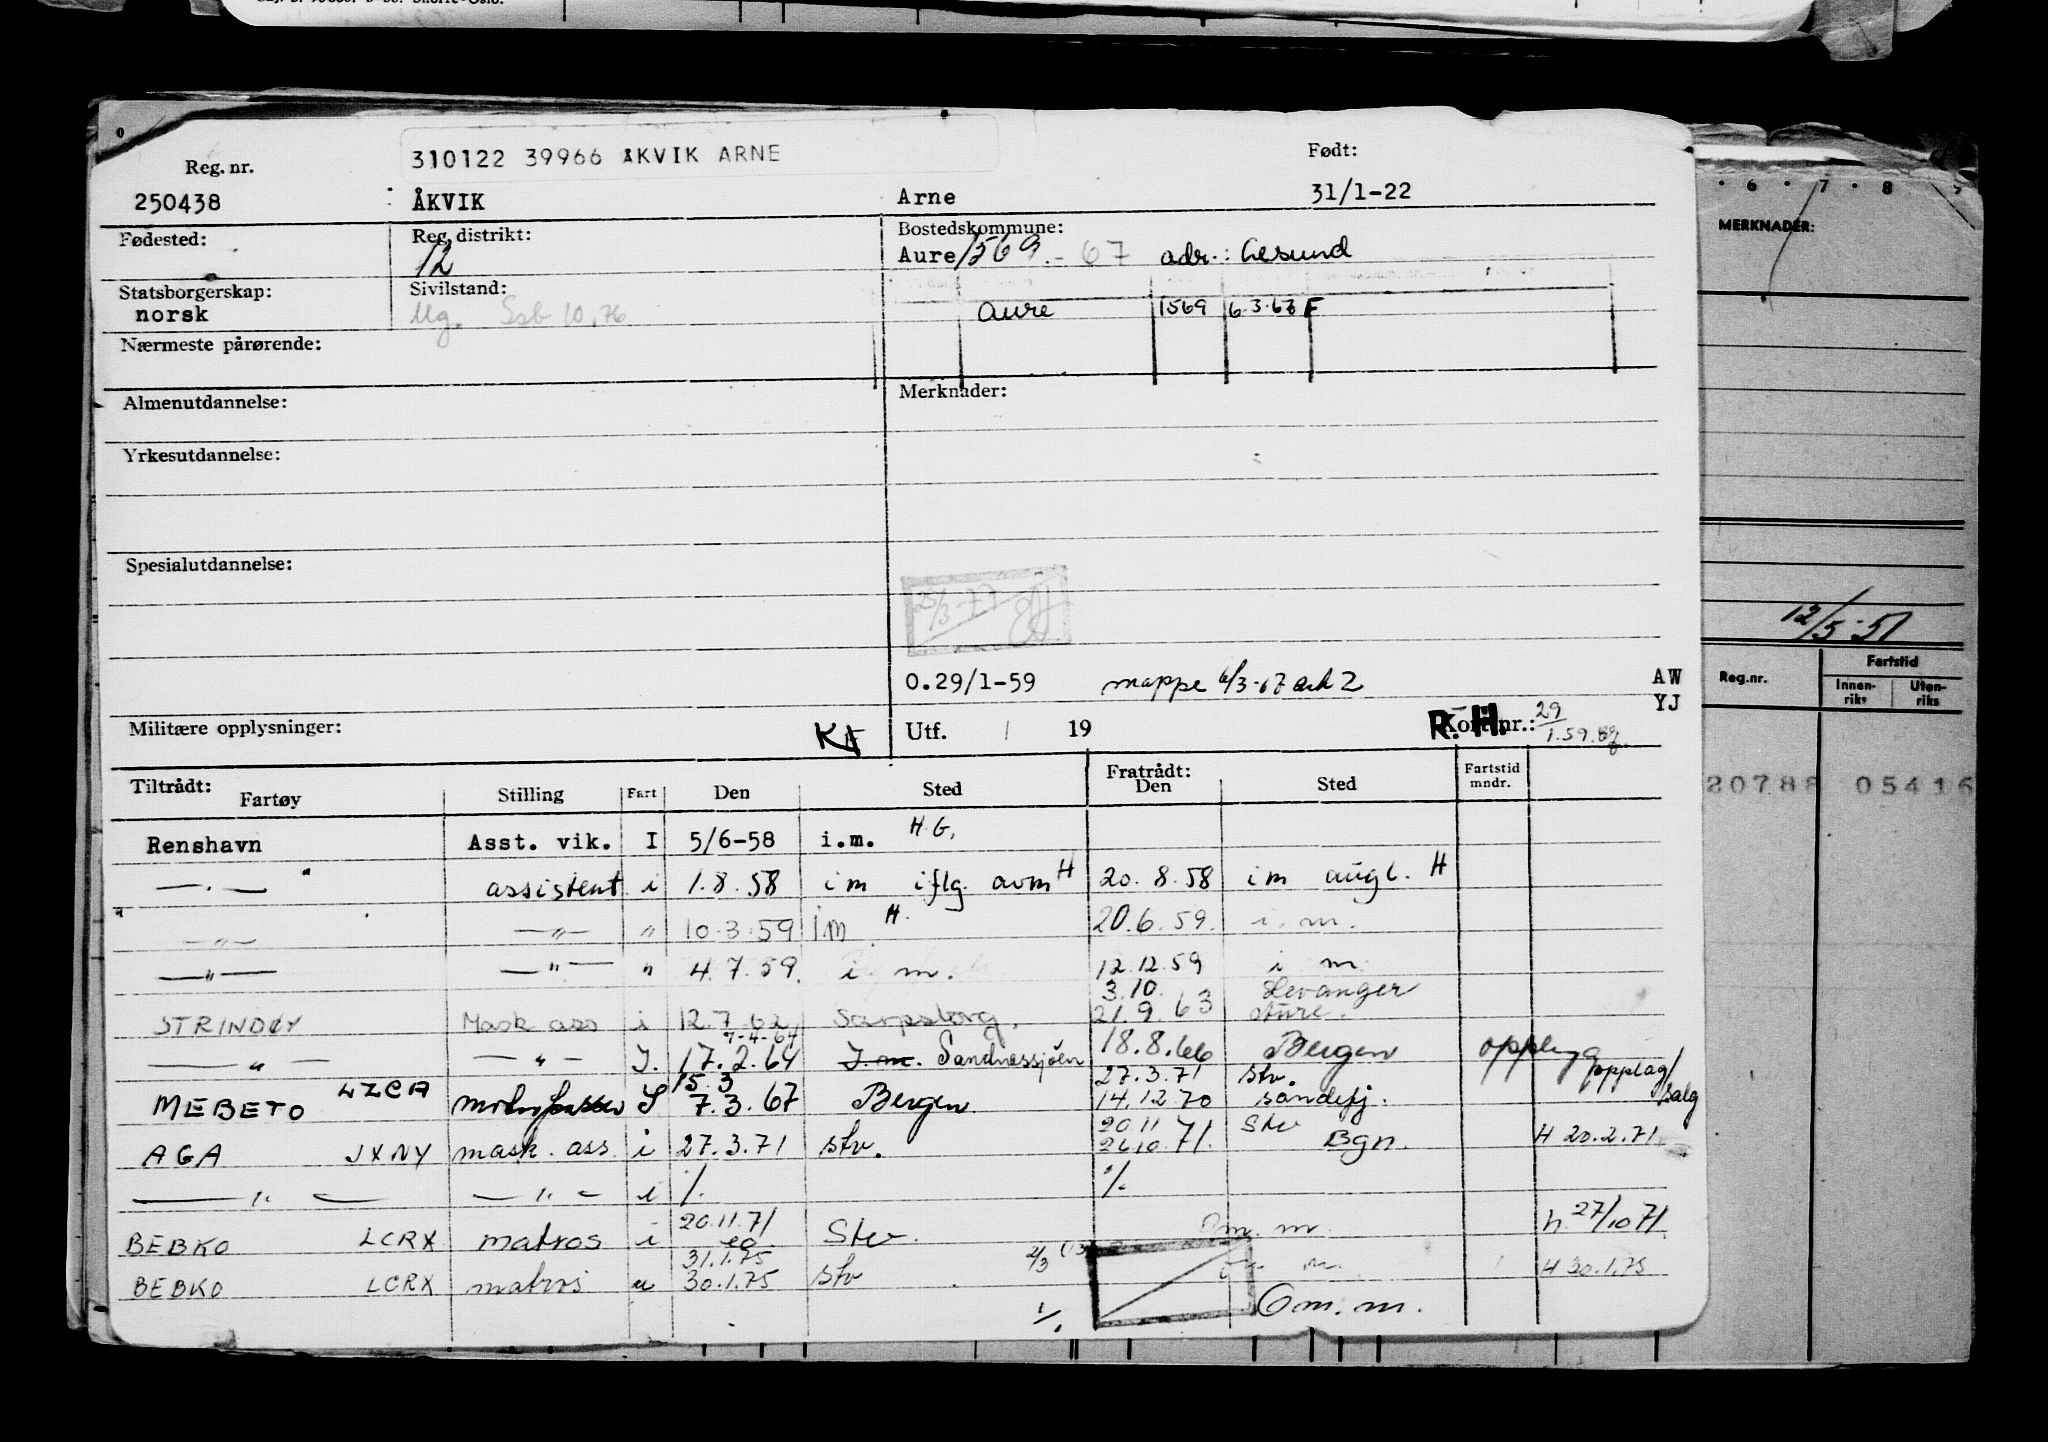 Reg. nr. 310122 39966 ÅKVIK ARNE Født:
250438 ÅKVIK Arne 31/1-22
Fødested: Reg. distrikt: Bostedskommune:
12 Aure 1569.-67 adr.:
Statsborgerskap: Sivilstand:
norsk Ug. Ssb 10.76 Aure 1569 6.3.67 F
Nærmeste pårørende:
Almenutdannelse: Merknader:
Yrkesutdannelse:
Spesialutdannelse:
25/3-77
0.29/1-59 mappe 6/3-67 ark 2 AW
YJ
Militære opplysninger: Utf. / 19 R.H. Kort nr.: 29/1.59.
Tiltrådt: Fratrådt: Fartstid
Fartøy Stilling Fart Den Sted Den Sted mndr.
Renshavn Asst. vik. I 5/6-58 i.m. H.G.
—.— assistent i 1.8.58 i m iflg. avm H 20.8.58 i m augl. H
—"— —"— " 10.3.59 i m H. 20.6.59. i. m.
—"— —"— " 4.7.59. i. m. 12.12.59 i m
3.10. Levanger
STRINDØY Mask ass i 12.7.62 Sarpsborg. 21.9.63 Aure.
7-4-64
—"— —"— I. 17.2.64 I. m. Sandnessjøen 18.8.66 Bergen opplag
15.3 27.3.71 Stv. opplag/
MEBETO LZCA S 7.3.67 Bergen 14.12 70 Sandefj. salg
20.11 Stv
AGA JXNY mask. ass. i 27.3.71 stv. 26.10.71. Bgn. H 20.2.71
—"— —"— i /. /.
20.11.71
BEBKO LCRX matros i Stv. Om. m. h. 27/10 71.
31.1.75 2/3
BEBKO LCRX matros u 30.1.75 Stv H 30.1.75
1/. Om. m.
6 7 8 9
MERKNADER:
12/5-51
Reg.nr. Fartstid
Innen-
riks Uten-
riks
20788 05416